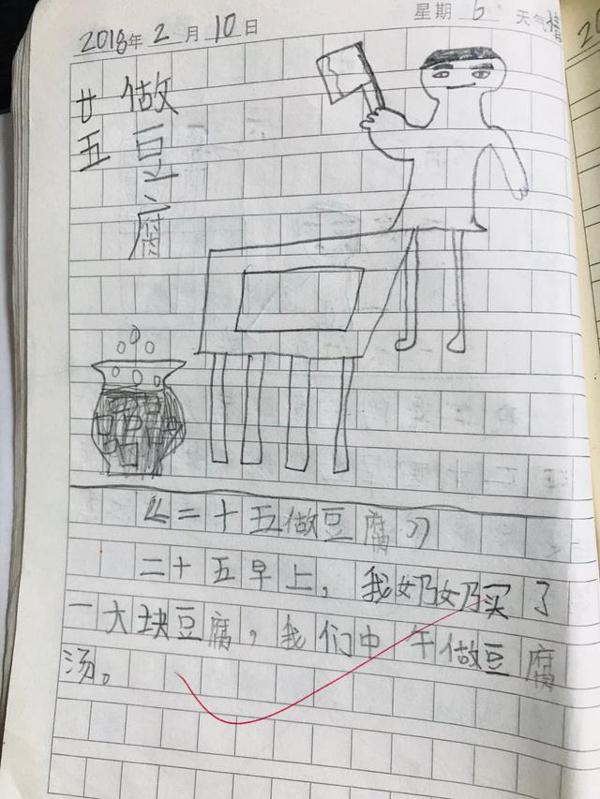 2018年2月10日 星期6 天气晴
廿五
做豆腐
《二十五做豆腐》
二十五早上，我奶奶买了
一大块豆腐，我们中午做豆腐
汤。
20